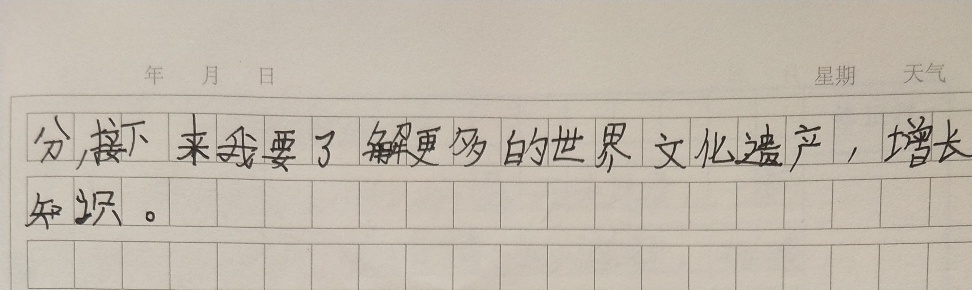 年 月 日 星期 天气
分,接下来我要了解更多的世界文化遗产，增长
知识。